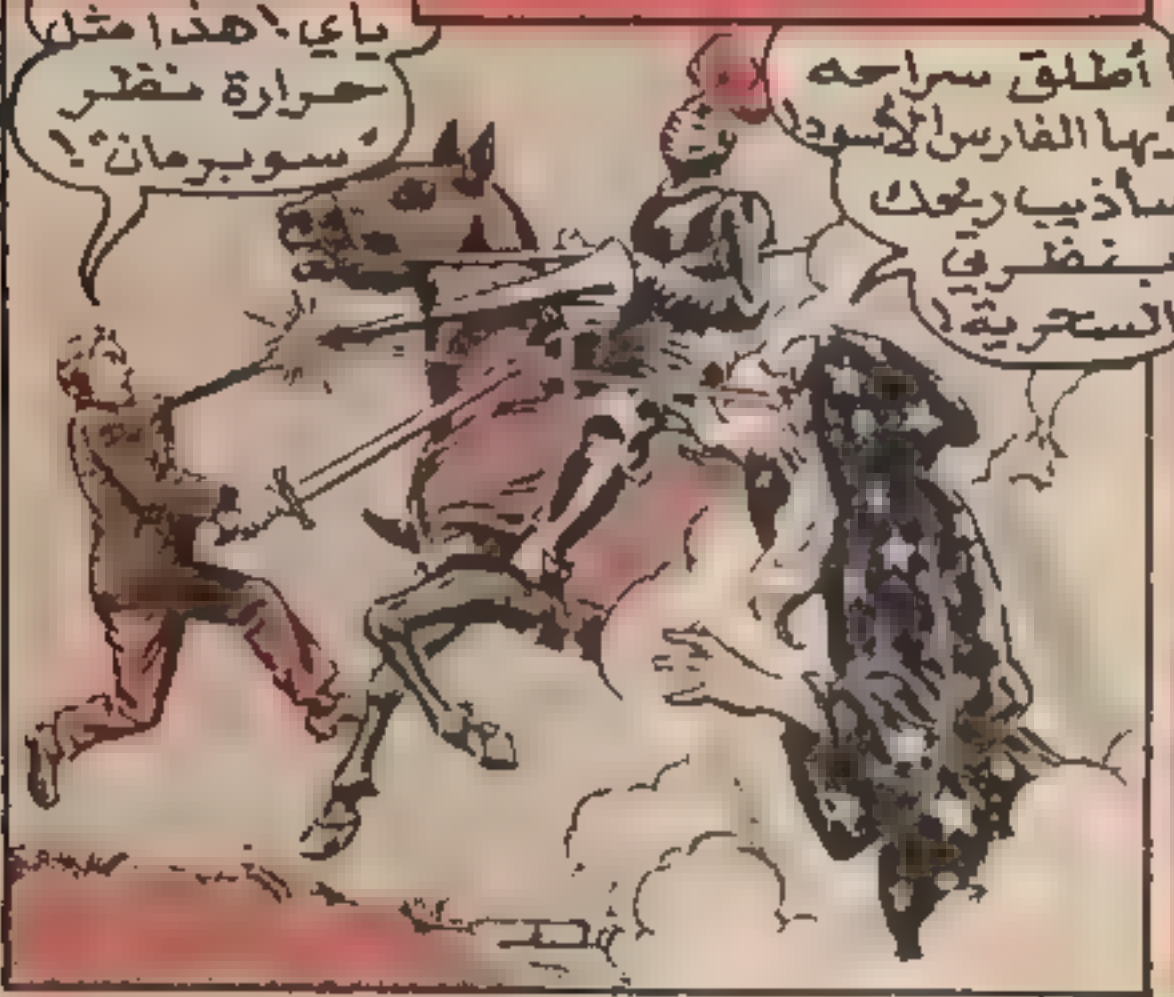 أطلق سراحه
أيها الفارس الأسود!
سأذيب رمحك
بنظرتي
السحرية!
ياي! هذا مثل
حرارة نظر
"سوبرمان"!